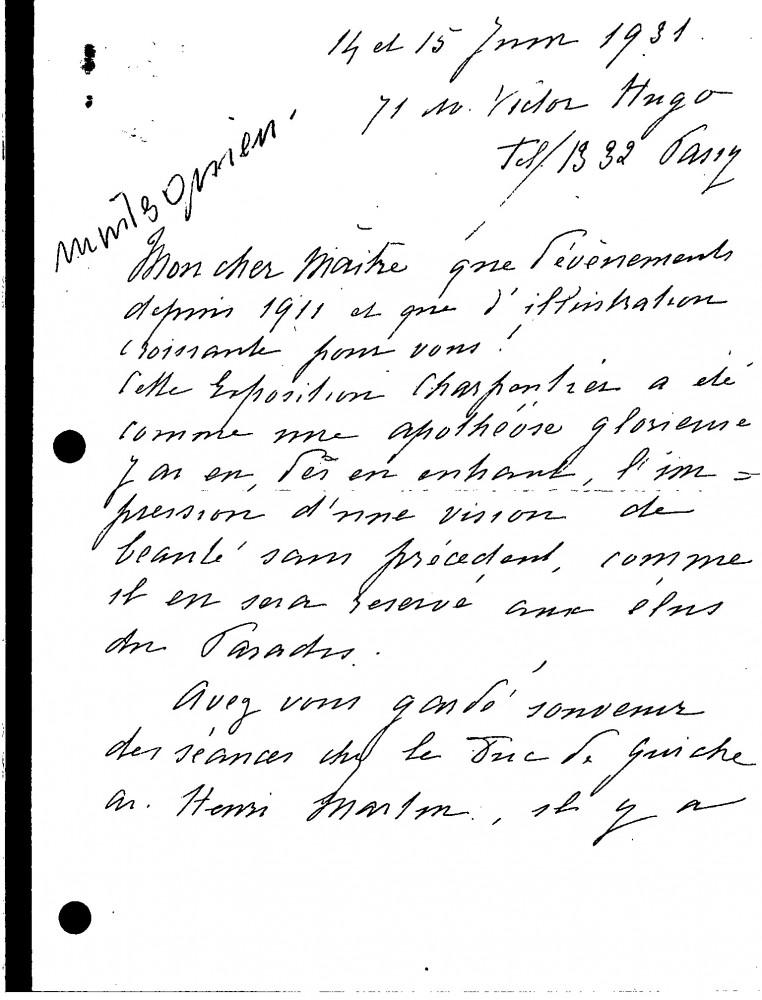 14 et 15 Juin 1931.
71 av. Victor Hugo
Tel/1332 Passy
Mon cher Maître que d'évènements
depuis 1911 et que d'illustration
croissante pour vous!
Cette Exposition Charpentier a été
comme une apothéose glorieuse
J'ai eu, dès en entrant, l'im=
pression d'une vision de
beauté sans précédent, comme
il en sera reservé aux élus
du Paradis.
Avez vous gardé souvenir
des séances chez le Duc de Guiche
av. Henri Martin, il y a